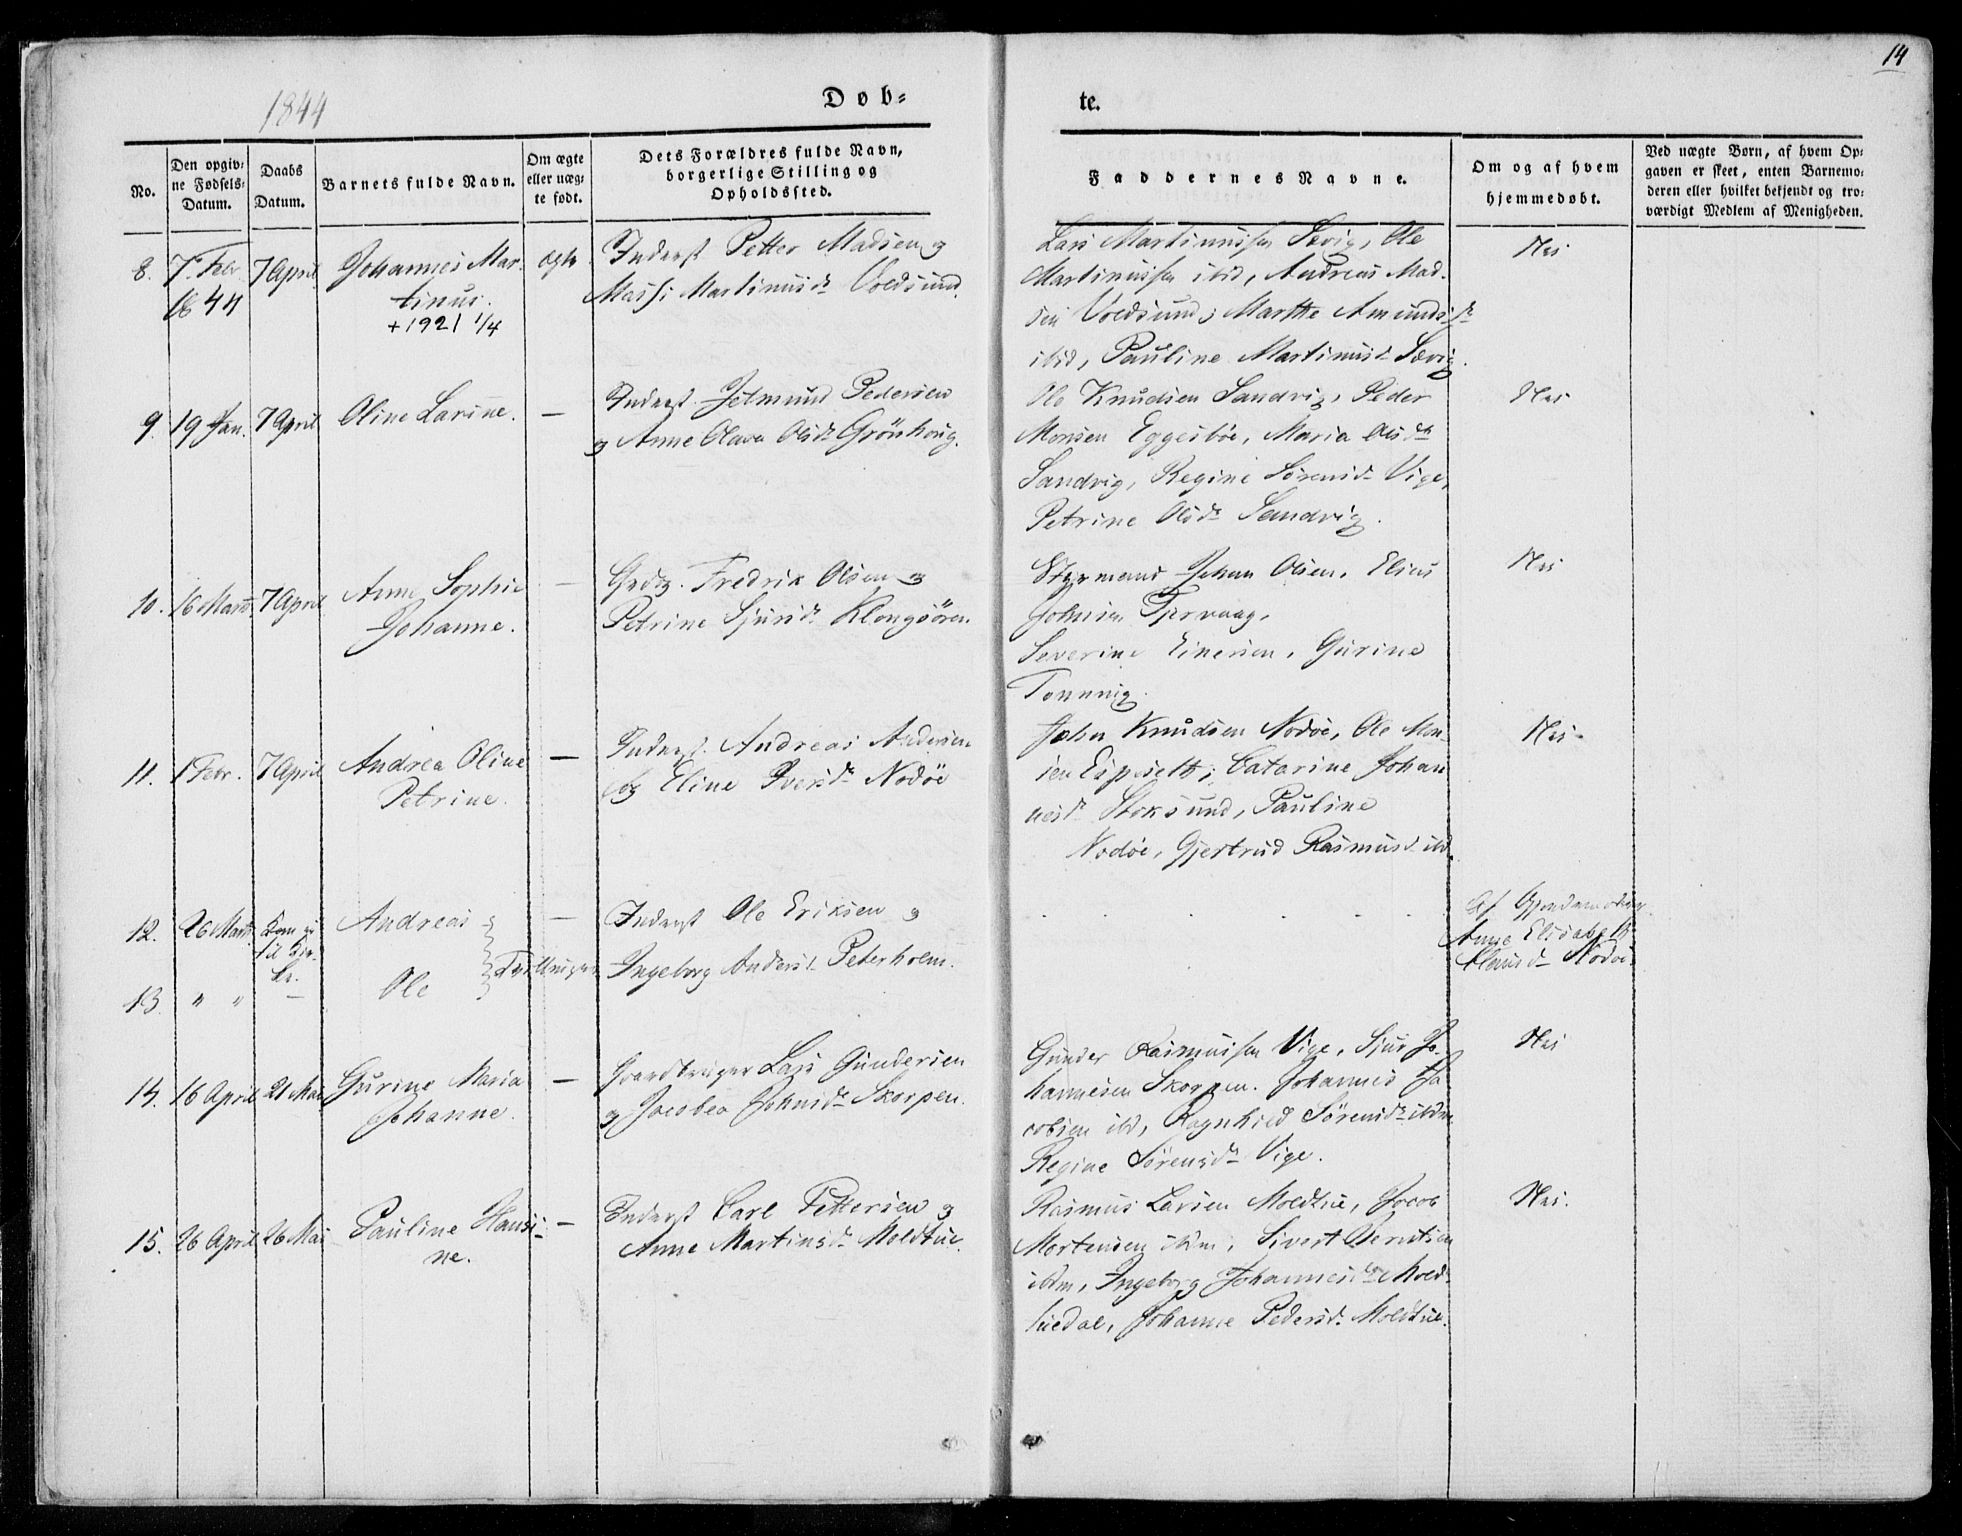 14
1844
Døb-
te.
No.
Den opgiv-
ne Fødsels-
Datum.
Daabs
Datum.
Barnets fulde Navn.
Om ægte
eller uæg-
te født.
Dets Forældres fulde Navn,
borgerlige Stilling og
Opholdssted.
Faddernes Navne.
Om og af hvem
hjemmedøbt.
Ved uægte Børn, af hvem Op-
gaven er skeet, enten Barnemo-
deren eller hvilket bekjendt og tro-
værdigt Medlem af Menigheden.
8.
7. Febr.
1844
7 April
Johannes Mar-
tinus.
+1921 1/4
ægte
Inderst Petter Madsen og
Massi Martinusd. Voldsund.
Lars Martinussen Sævig, Ole
Martinussen ibid, Andreas Mad-
sen Voldsund, Marthe Amunds
ibid, Pauline Martinusd Sævig.
Nei
9.
19 Jan.
7 April
Oline Larine.
—
Inderst. Jetmund Pedersen
og Anne Olava Olsd. Grönhoug.
Ole Knudsen Sandvig, Peder
Monsen Eggesbøe, Maria Olsd
Sandvig, Regine Sørensd. Vige,
Petrine Olsd. Sandvig.
Nei
10.
16 Marts
7 April
Anne Sophie
Johanne.
—
Fredrik Olsen og
Petrine Sjursd. Klongsören
Styrmand Johan Olsen, Elias
Johnsen Tjervaag,
Severine Einersen, Gurine
Tonning.
Nei
11.
1 Febr.
7 April
Andrea Oline
Petrine.
—
Inderst. Andreas Andersen
og Eline Iversd. Nodøe
John Knudsen Nodøe, Ole Mon-
sen Espeseth, Catarine Johan
nesd. Stoksund, Pauline
Nodøe, Gjertrud Rasmusd. ibd.
Nei
12.
26 Marts
Kom ei
til Kir-
ke.
Andreas
Tvillinger
—
Inderst Ole Eriksen og
Ingeborg Andersd. Peterholm.
Af Gjordemoder
Anne Elisabeth
Nodøe
13.
" "
—
Ole
14.
16 April
21 Mai
Gurine Maria
Johanne.
—
Gaardbruger Lars Gundersen
og Jacobea Johnsd. Skorpen.
Gunder Rasmussen Vige, Sjur Jo-
hannesen Skorpen. Johannes Ja
cobsen ibd, Ragnhild Sørensd. ibdm
Regine Sørensd. Vige.
Nei
15.
26 April
26 Mai
Pauline Hansi-
ne.
—
Inderst Carl Pettersen og
Anne Martinsd. Moldtue.
Rasmus Larsen Moldtue, Jacob
Mortensen ibdm, Sivert Berntsen
ibdm, Ingeborg Johannesd. Mold-
tuedal, Johanne Pedersd. Moldtue.
Nei.